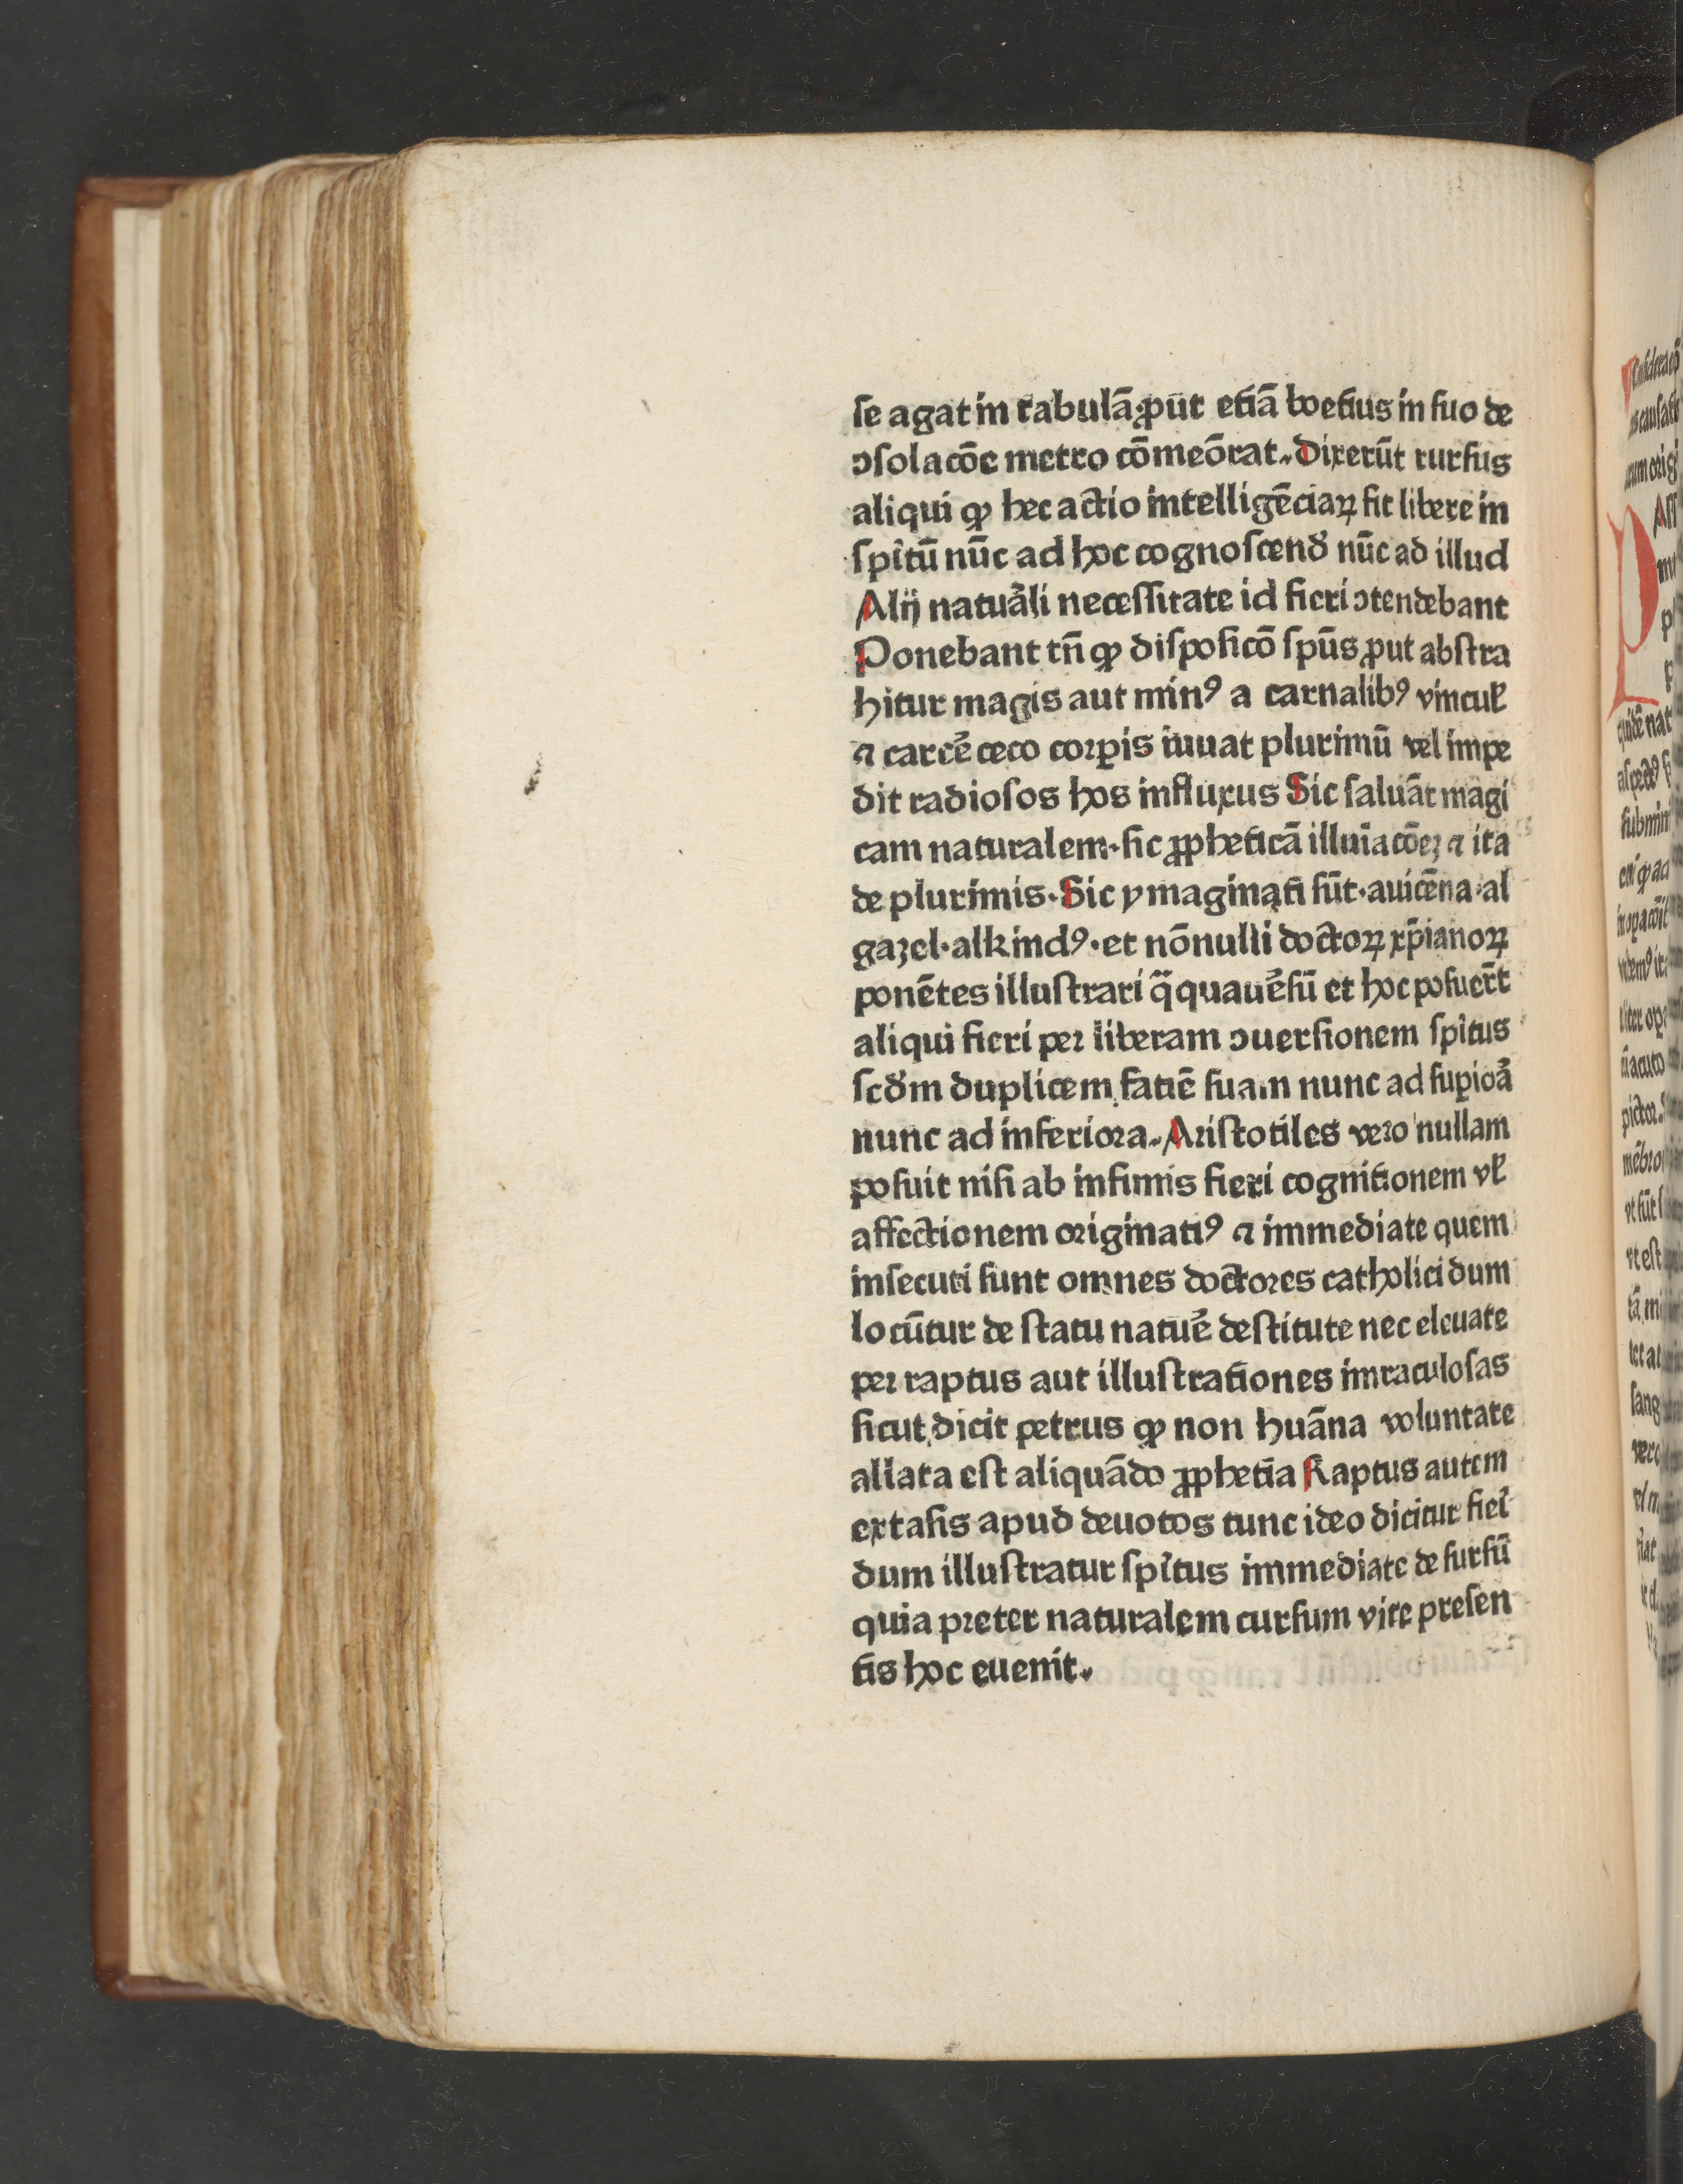 ſe agat in tabulā ꝓut etiā boetius in ſuo de
ↄſolacōe metro cōmeōrat. Dixerūt rurſus
aliqui ꝙ hec actio intelligēciaꝝ fit libere in
ſpītū nūc ad hoc cognoſcend̄ nūc ad illud
Alij natuāli neceſſitate id fieri ↄtendebant
Ponebant tn̄ ꝙ diſpoſicō ſpūs ꝓut abſtra
hitur magis aut minꝰ a carnalibꝰ vincuł
⁊ carcē ceco corꝑis iuuat plurimū vel impe
dit radioſos hos influxus Sic ſaluāt magi
cam naturalem· ſic ꝓpheticā illuīacōeꝫ ⁊ ita
de plurimis· Sic ymaginati ſūt· auicēna· al
gazel· alkindꝰ· et nōnulli doctoꝝ xp̄ianoꝝ
ponētes illuſtrari q̄quauēſū et hoc poſuer̄t
aliqui fieri per liberam ↄuerſionem ſpītus
ſcd̄m duplicem faciē ſuam nunc ad ſuꝑioā
nunc ad inferiora. Ariſtotiles vero nullam
poſuit niſi ab infimis fieri cognitionem vł
affectionem originatiꝰ ⁊ immediate quem
inſecuti ſunt omnes doctores catholici dum
locūtur de ſtatu natuē deſtitute nec eleuate
per raptus aut illuſtrationes imraculoſas
ſicut dicit petrus ꝙ non huāna voluntate
allata eſt aliquādo ꝓphetia Raptus autem
extaſis apud deuotos tunc ideo dicitur fieī
dum illuſtratur ſpītus immediate de ſurſū
quia preter naturalem curſum vite preſen
tis hoc euenit.